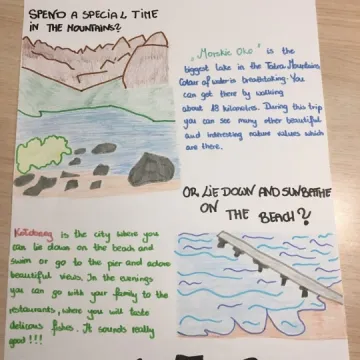 SPEND A SPECIAL TIME
IN THE MOUNTAINS?
"Morskie Oko" is the
biggest lake in the Tatra Mountains.
Colour of water is breathtaking. You
can get there by walking
about 18 kilometres. During this trip
you can see many other beautiful
and interesting nature values which
are there.
OR LIE DOWN AND SUNBATHE
ON THE BEACH?
is the city where you
can lie down on the beach and
swim or go to the pier and adore
beautiful views. In the evenings
you can go with your family to the
restaurants, where you will taste
delicous fishes. It sounds really
good!!!